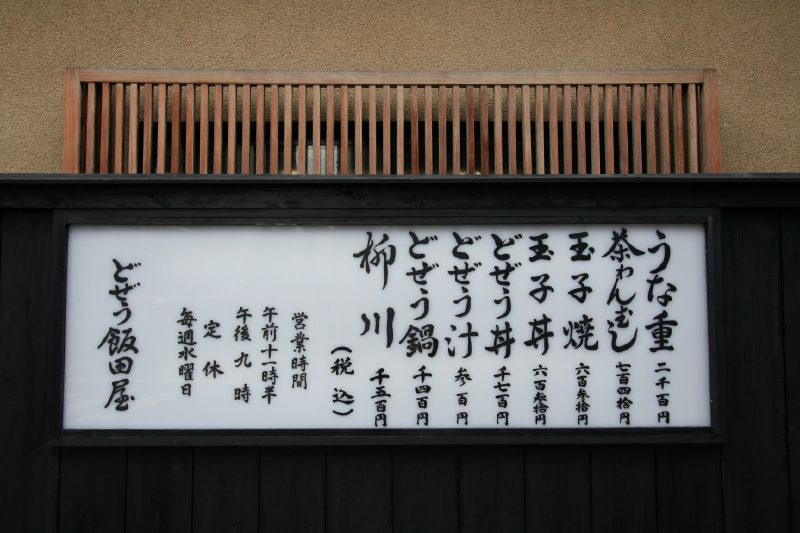 うな重 二千百円
茶わんむし 七百四拾円
玉子焼 六百参拾円
玉子丼 六百参拾円
どぜう丼 千七百円
どぜう汁 参百円
どぜう鍋 千四百円
柳川 千五百円
(税込)
営業時間
午前十一時半
午後九時
定休
毎週水曜日
どぜう飯田屋